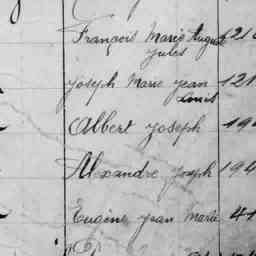 François Marie August 21
Jules
Joseph Marie Jean 121
Louis
Albert Joseph 19
Alexandre Joseph 194
Eugène Jean Marie 41